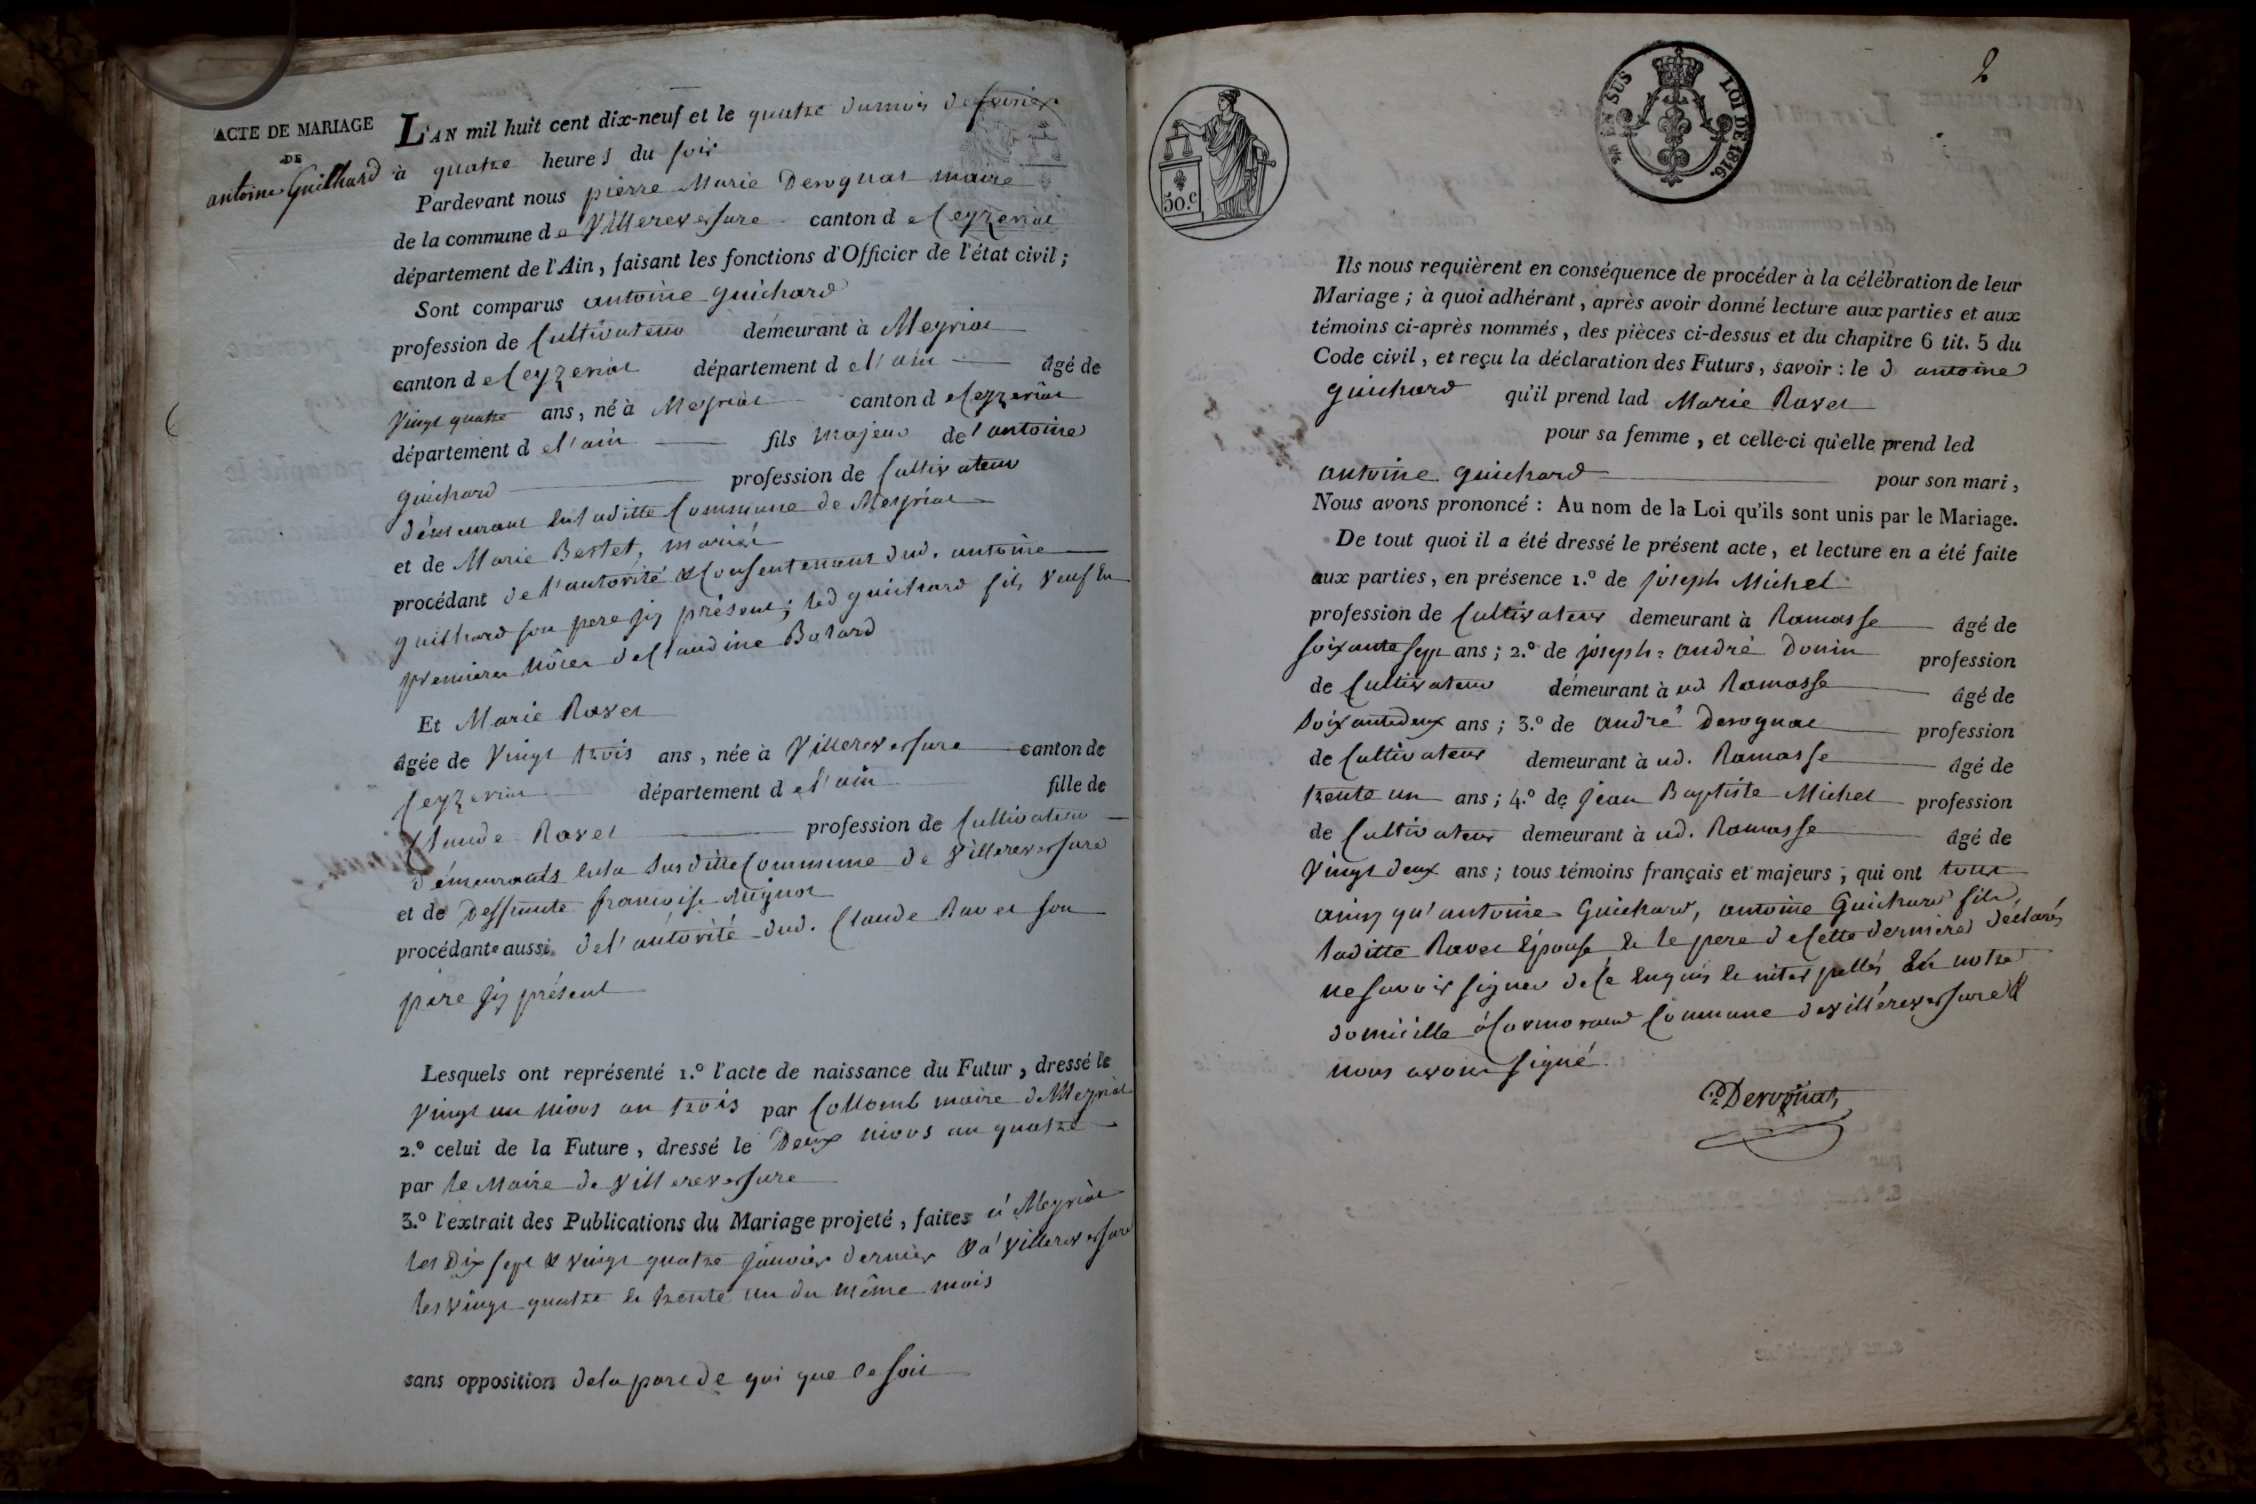 ACTE DE MARIAGE
DE
antoine Guichard
L'AN mil huit cent dix-neuf et le quatre du mois de fevrier
à quatre heures du soir
Pardevant nous pierre Marie Derognat maire
de la commune de Villereversure canton de Ceyzeriat
département de l'Ain, faisant les fonctions d'Officier de l'état civil;
Sont comparus antoine guichard
profession de Cultivateur demeurant à Meyriat
canton de Ceyzeriat département de l'ain âgé de
Vingt quatre ans, né à Meyriat canton de Ceyzeriat
département de l'ain fils majeur de l'antoine
guichard profession de Cultivateur
démeurant en laditte Commune de Meyriat
et de Marie Bertet, mariés
procédant de l'autorité & Consentement dud. antoine
guichard son pere ici présent; led guichard fils veuf en
premieres nôces de Claudine Bolard
Et Marie Ravet
âgée de Vingt trois ans, née à Villereversure canton de
Ceyzeriat département de l'ain fille de
Claude Ravet profession de Cultivateur
démeurants en la susditte Commune de Villereversure
et de Deffunte francoise Mignot
procédante aussi de l'autorité dud. Claude Ravet son
pere ici présent
Lesquels ont représenté 1.º l'acte de naissance du Futur, dressé le
Vingt un nivos an trois par Collomb maire de Meyriat
2.º celui de la Future, dressé le Deux nivos an quatre
par le Maire de Villereversure
3.º l'extrait des Publications du Mariage projeté, faites à Meyriat
les Dix sept & vingt quatre janvier dernier & à Villereversure
les vingt quatre & trente un du même mois
sans opposition de la part de qui que ce soit
2
EN SUS
LOI DE 1816.
50.c
Ils nous requièrent en conséquence de procéder à la célébration de leur
Mariage; à quoi adhérant, après avoir donné lecture aux parties et aux
témoins ci-après nommés, des pièces ci-dessus et du chapitre 6 tit. 5 du
Code civil, et reçu la déclaration des Futurs, savoir: le d antoine
guichard qu'il prend lad Marie Ravet
pour sa femme, et celle-ci qu'elle prend led
antoine guichard pour son mari,
Nous avons prononcé: Au nom de la Loi qu'ils sont unis par le Mariage.
De tout quoi il a été dressé le présent acte, et lecture en a été faite
aux parties, en présence 1.º de joseph Michel
profession de Cultivateur demeurant à Ramasse âgé de
soixante sept ans; 2.º de joseph = andré Donin profession
de Cultivateur démeurant à ud Ramasse âgé de
soixante deux ans; 3.º de andré Derognat profession
de Cultivateur demeurant à ud. Ramasse âgé de
trente un ans; 4.º de jean Baptiste Michel profession
de Cultivateur demeurant à ud. Ramasse âgé de
Vingt deux ans; tous témoins français et majeurs; qui ont tous
ainsy qu'antoine Guichard, antoine Guichard fils
laditte Ravet épouse & le pere de Cette derniere déclarés
ne savoir signer de Ce enquis & interpellés En notre
domicille à Cormorand Commune de villéreversure &
nous avons signé
Derognat